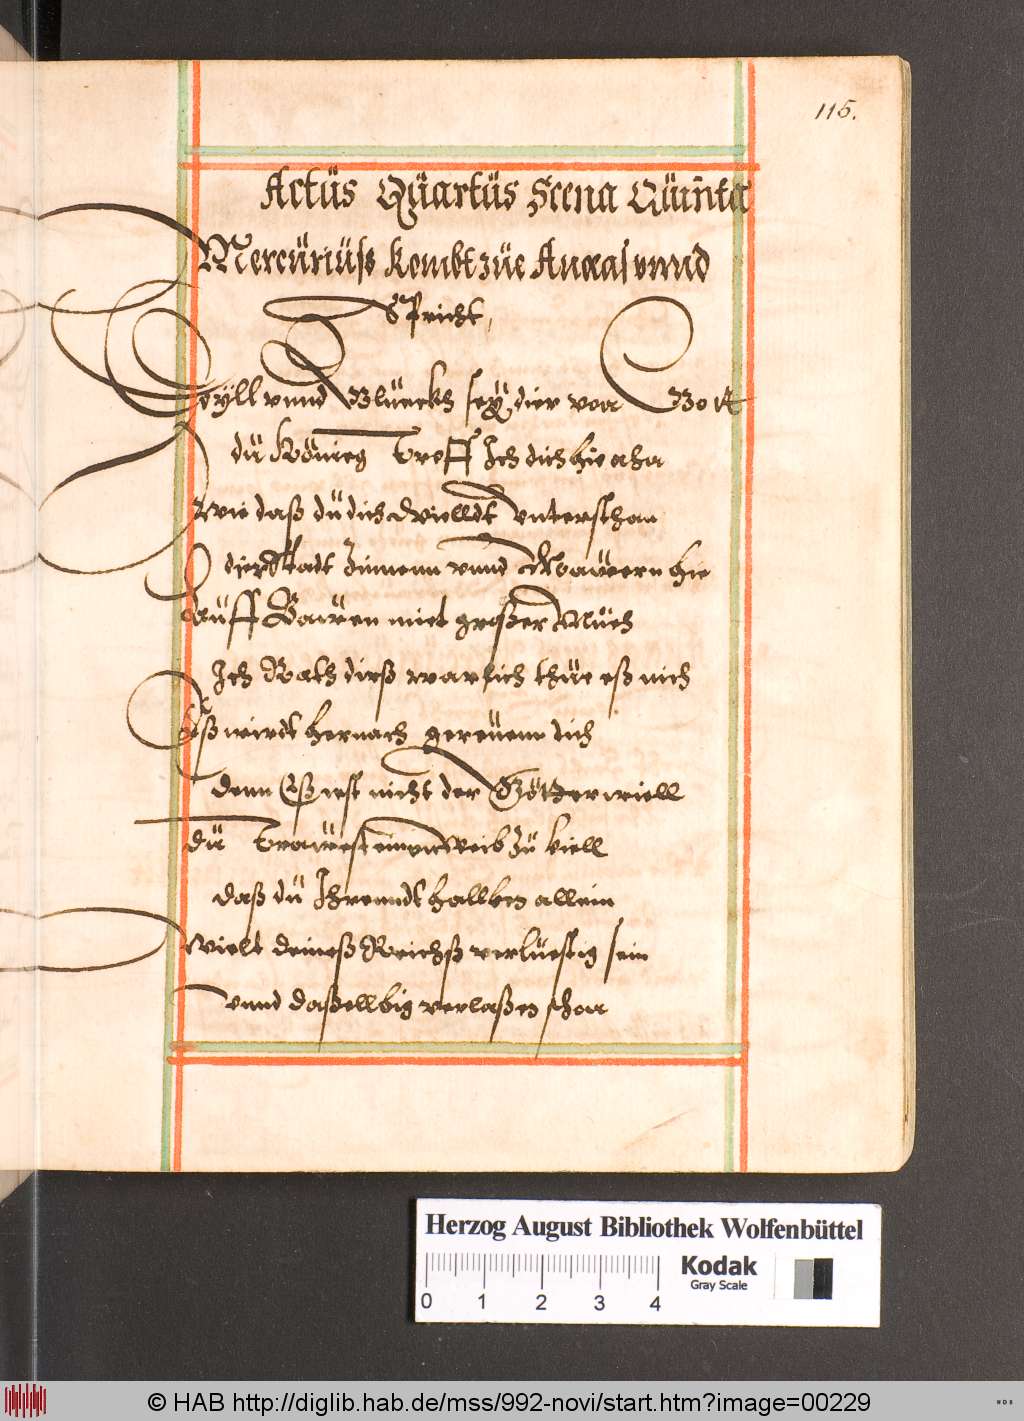 115.
Actüs Quartüs Scena Quinta
Mercüriüß kombt züe Anæas vnnd
Spricht,
Heÿll vnnd Glüeckh seÿ dier von Gott
dü Könieg treff Ich dich hie aha
Wie daß dü dich wielldt vnterschan
dieße Stadt Zinnenn vnnd Maüeern hie
Auff Baüwen miet großer Müeh
Ich Rath dirß warlich thüe eß nich
Eß wirdt hernach gereüenn dich
denn Eß iest nicht der Götter wiell
dü traüest einem Weib Zü viell
daß dü Ihrenndt hallben allein
Wielt deineß Reichß verlüestig sein
vnnd daßellbig verlaßen schon
Herzog August Bibliothek Wolfenbüttel
Kodak
Gray Scale
0 1 2 3 4
© HAB http://diglib.hab.de/mss/992-novi/start.htm?image=00229